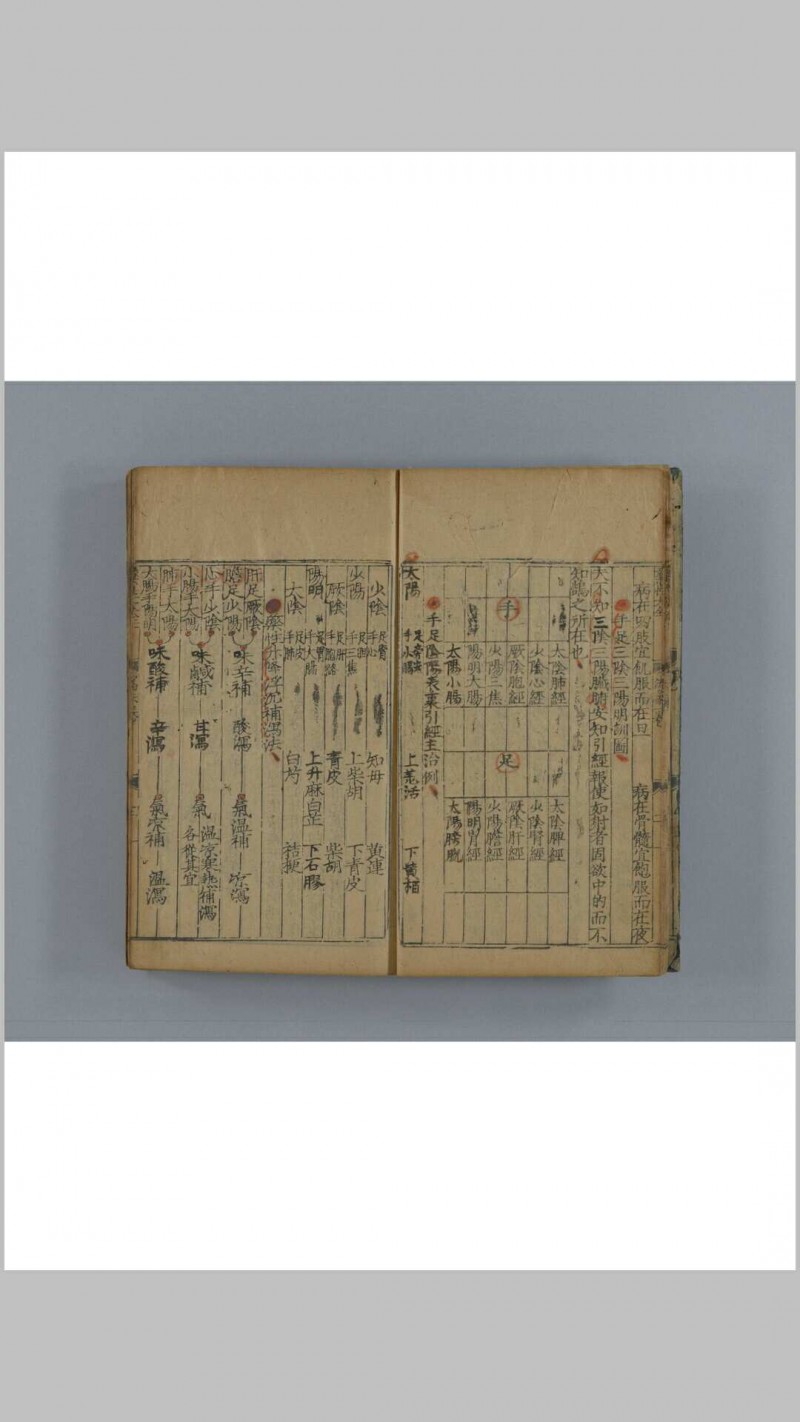 病在四肢宜飢服而在旦　病在骨髓宜飽服而在夜
手足三陰三陽明訓圖
夫不知三陰三陽臟腑安知引經報使如射者固欲中的而不
知鵠之所在也
手 足
太陰肺經 太陰脾經
少陰心經 少陰腎經
厥陰胞經 厥陰肝經
少陽三焦 少陽膽經
陽明大腸 陽明胃經
太陽小腸 太陽膀胱
手足陰陽表裏引經主治例
太陽 足膀胱 手小腸 上羌活 下黃栢
少陰 足腎 手心 知母 黃連
少陽 足膽 手三焦 上柴胡 下青皮
厥陰 足肝 青皮 柴胡
陽明 足胃 手大腸 上升麻白芷 下石膏
太陰 足脾 手肺 白芍 桔梗
藥性升降浮沉補瀉法
肝足厥陰
膽足少陽 味辛補 酸瀉 氣溫補 凉瀉
心手少陰
小腸手太陽 味鹹補 甘瀉 氣 溫凉寒熱補瀉各從其宜
肺手太陰
大腸手陽明 味酸補 辛瀉 氣凉補 溫瀉